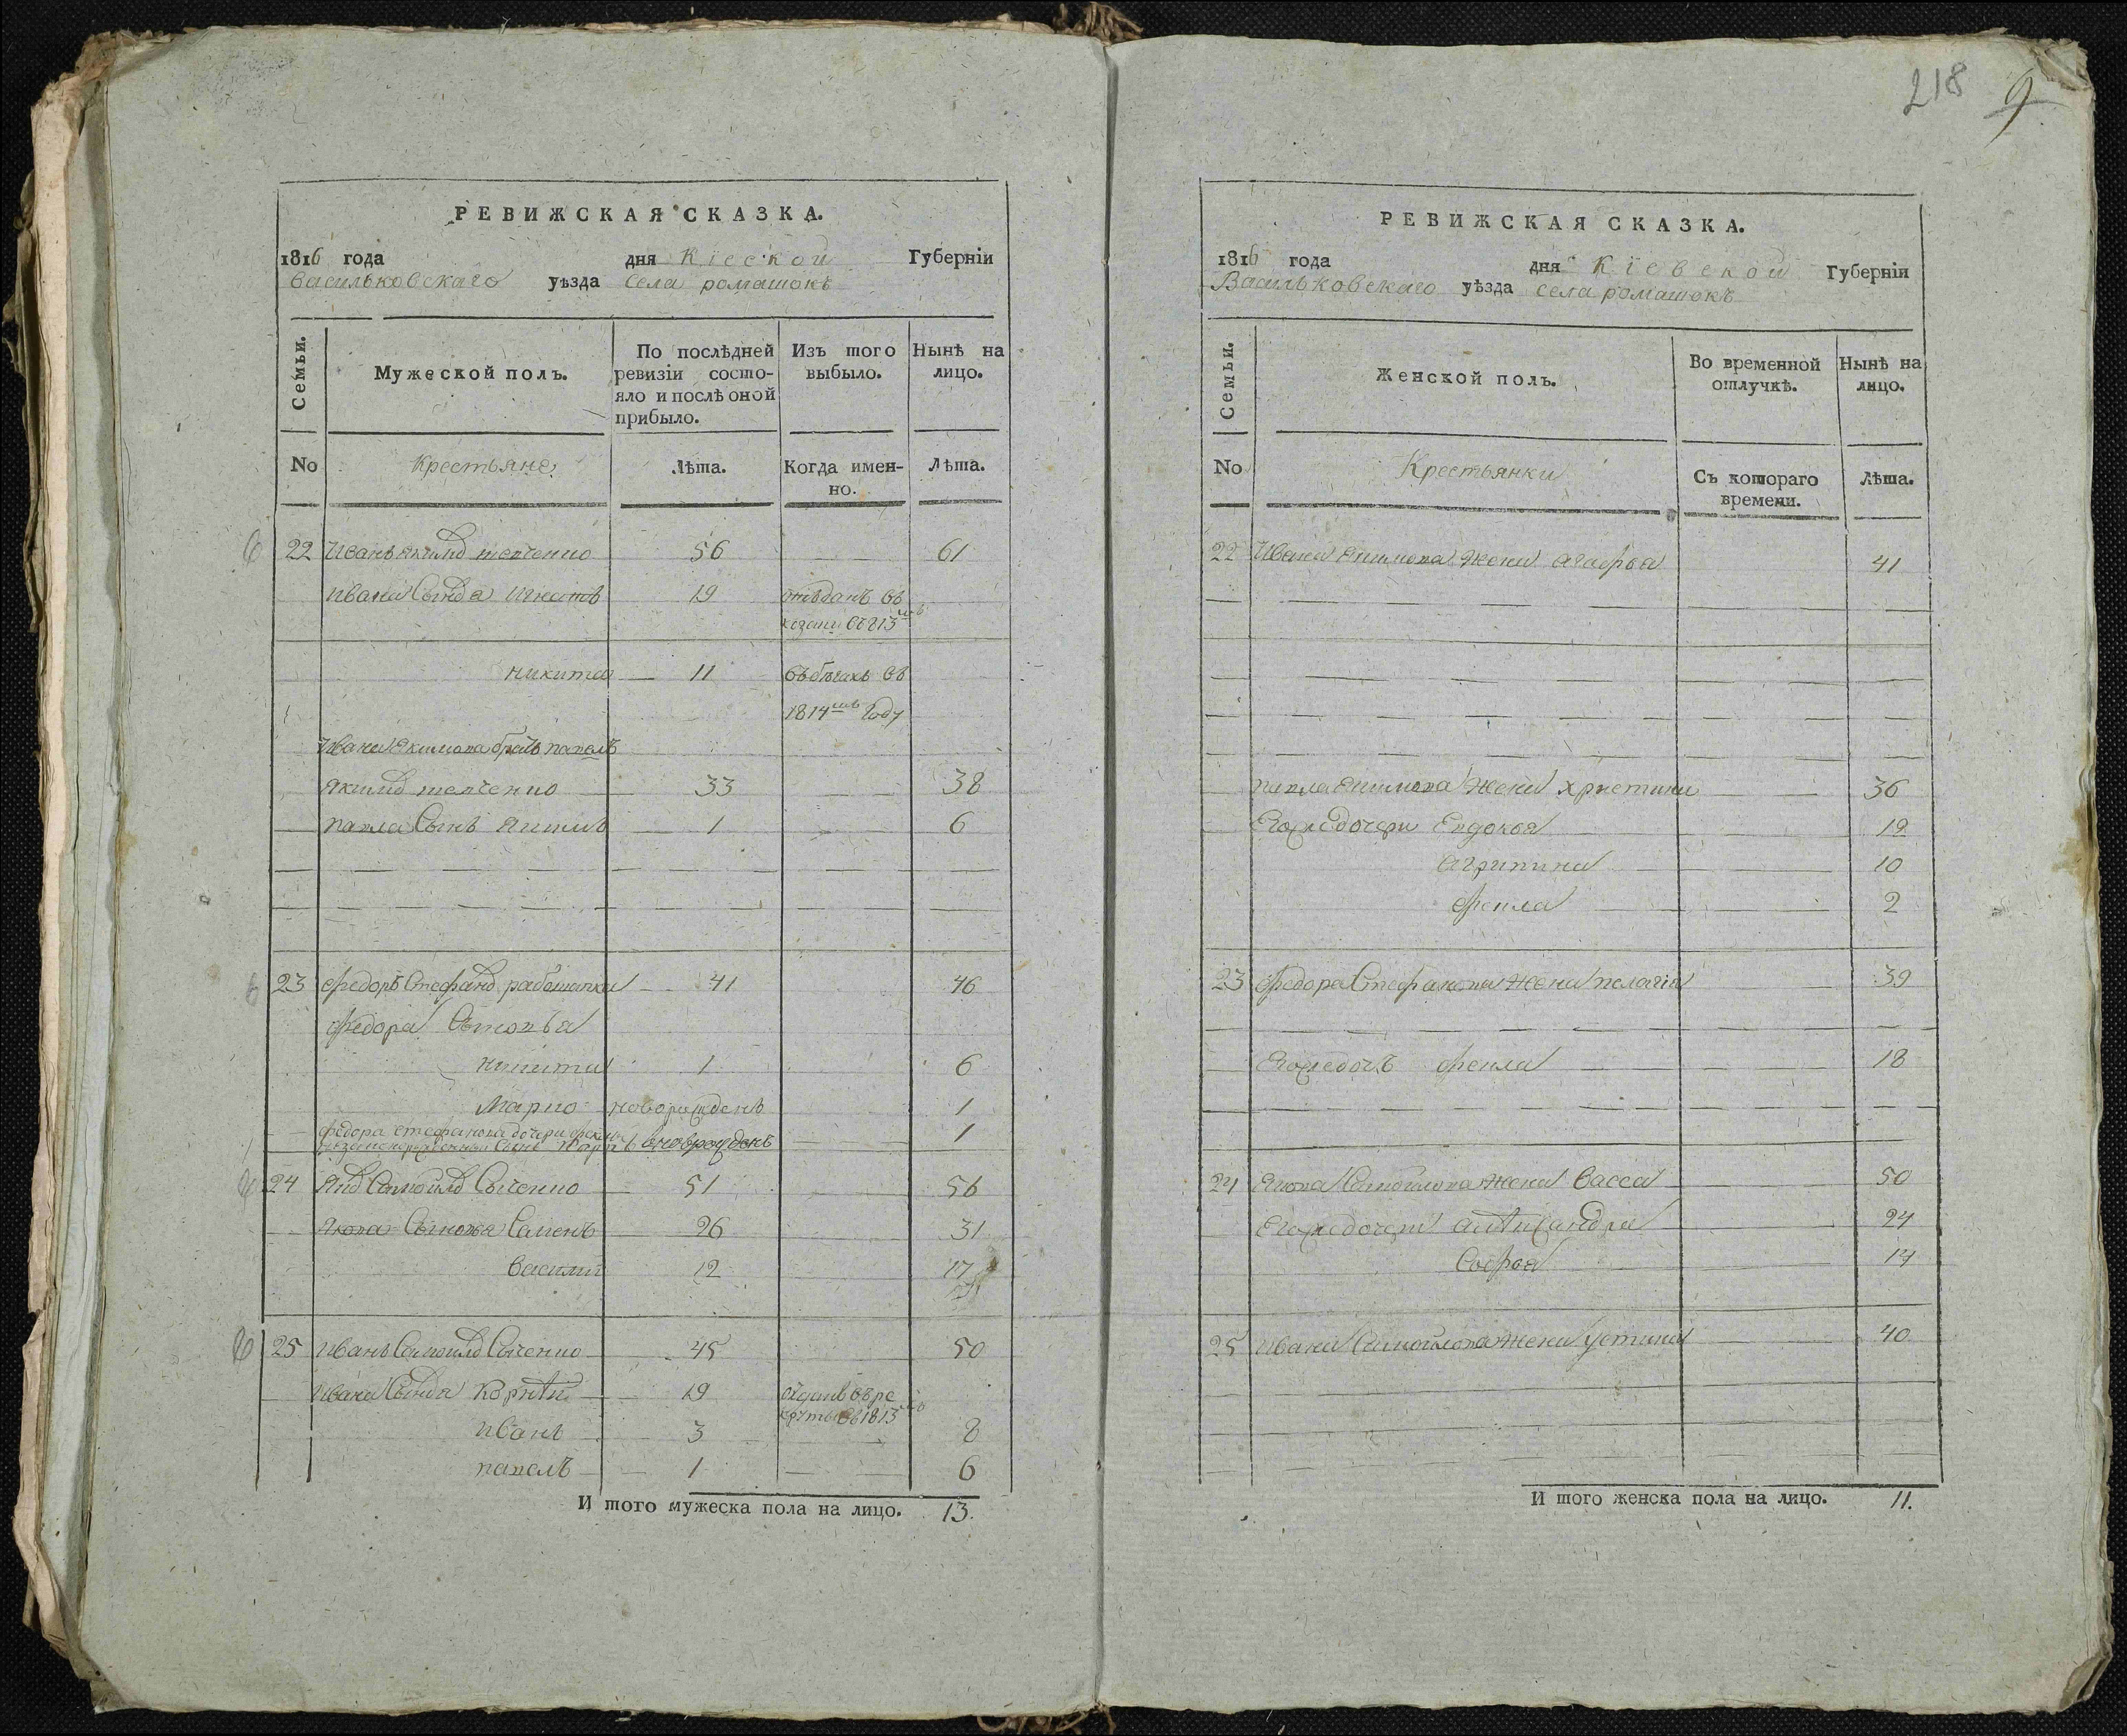 218 9
РЕВИЖСКАЯ СКАЗКА.
1816 года дня Кіевской Губерніи
Васильковскаго уѣзда села ромашокъ
Семьи.
Мужеской полъ.
По послѣдней ревизіи состо-
яло и послѣ оной
прибыло.
Изъ того выбыло.
Нынѣ на лицо.
No Крестьяне Лѣта. Когда имен-
но. Лѣта.
22 Иванъ Якимов 56 61
Ивана Сыновья Игнатъ 19 отъданъ въ
козаки въ 813
никита 11 въ бегахъ въ
1814мъ году
Ивана Якимова братъ павелъ
Якимов 33 38
павла Сынъ Якимъ 1 6
23 федоръ Стефанов 41 46
федора Сыновья
никита 1 6
Марко новорожденъ 1
федора стефанова дочери феклы
Сынъ новорожденъ 1
24 Яков Самойлов Сыченко 51 56
Якова Сыновья Семенъ 26 31
Василий 12 17
25 Иванъ Самойлов Сыченко 45 50
Ивана Сыновья Корнѣй 19 отданъ въ ре
круты въ 1813
Иванъ 3 8
павелъ 1 6
И того мужеска пола на лицо. 13.
РЕВИЖСКАЯ СКАЗКА.
1816 года дня Кіевской Губерніи
Васильковскаго уѣзда села ромашокъ
Семьи.
Женской полъ.
Во временной
отлучкѣ.
Нынѣ на
лицо.
No Крестьянки Съ котораго
времени. Лѣта.
22 Ивана Якимова Жена агафья 41
павла Якимова Жена христина 36
Егоже дочери Евдокья 12
агрипина 10
фекла 2
23 федора Стефанова Жена пелагія 39
Егоже дочь фекла 18
24 Якова Самойлова Жена Васса 50
Егоже дочери александра 24
Софья 14
25 Ивана Самойлова Жена устина 40
И того женска пола на лицо. 11.